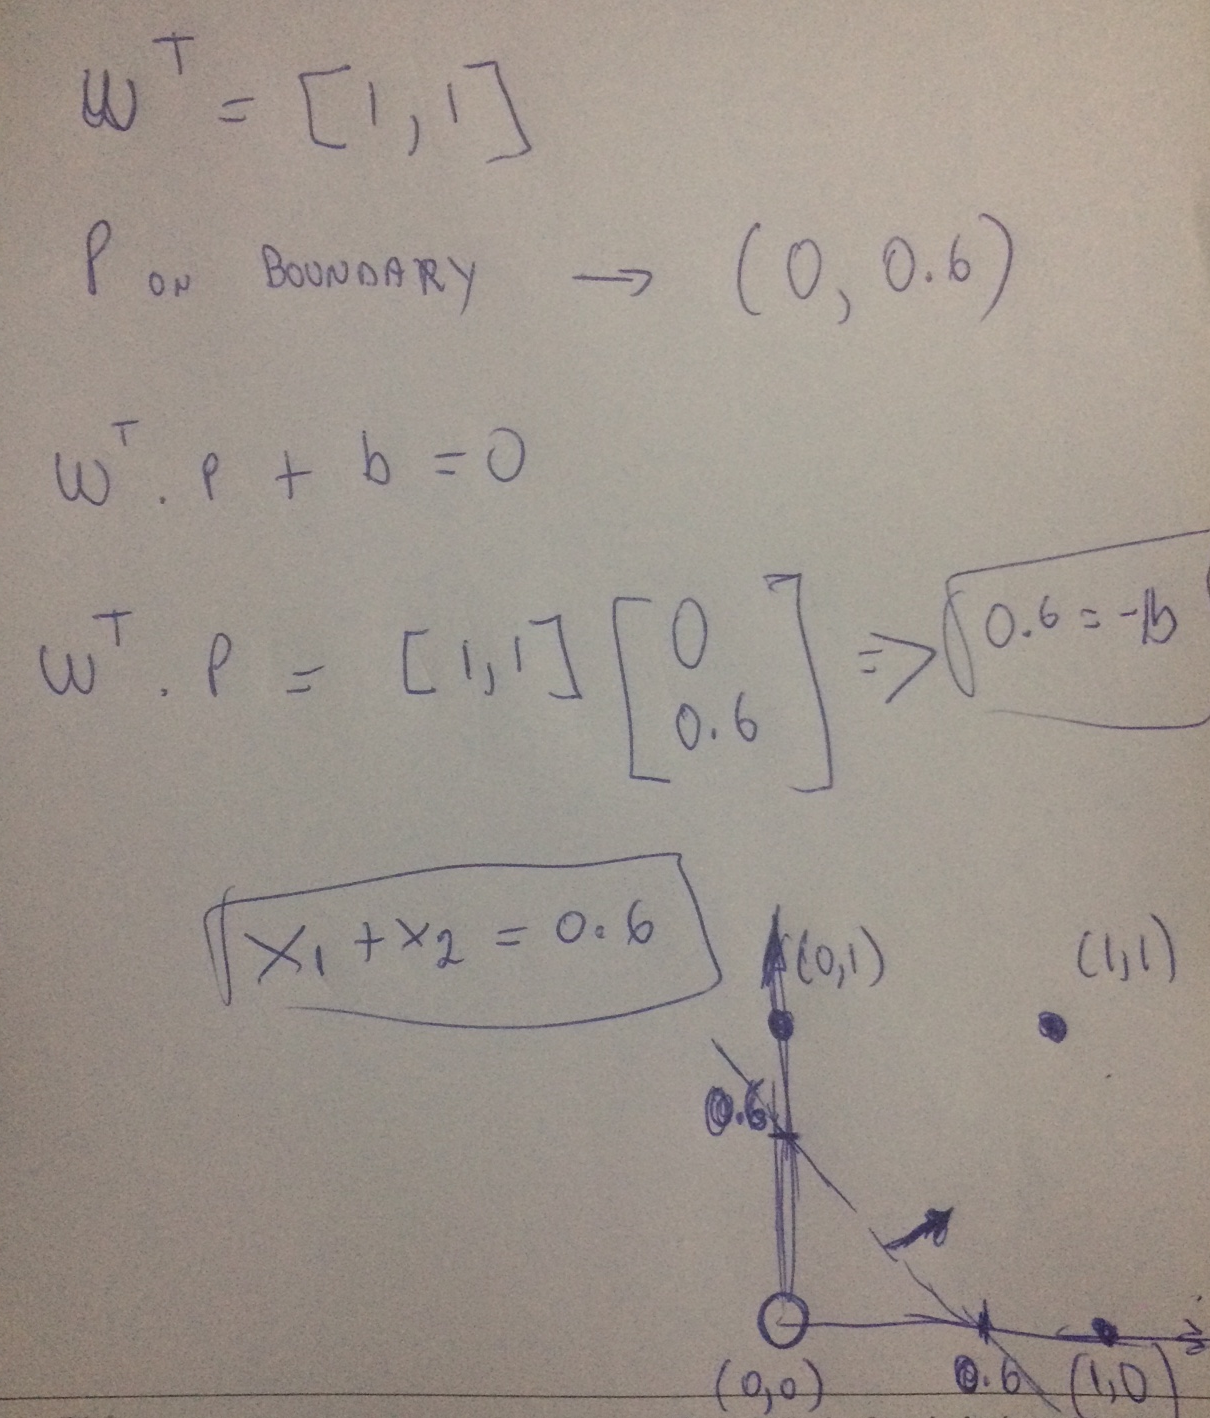 W^T = [1, 1]
P ON BOUNDARY → (0, 0.6)
W^T . P + b = 0
W^T . P = [1, 1] [0 0.6] => 0.6 = -b
X1 + X2 = 0.6
(0,1) (1,1)
0.6
(0,0) 0.6 (1,0)